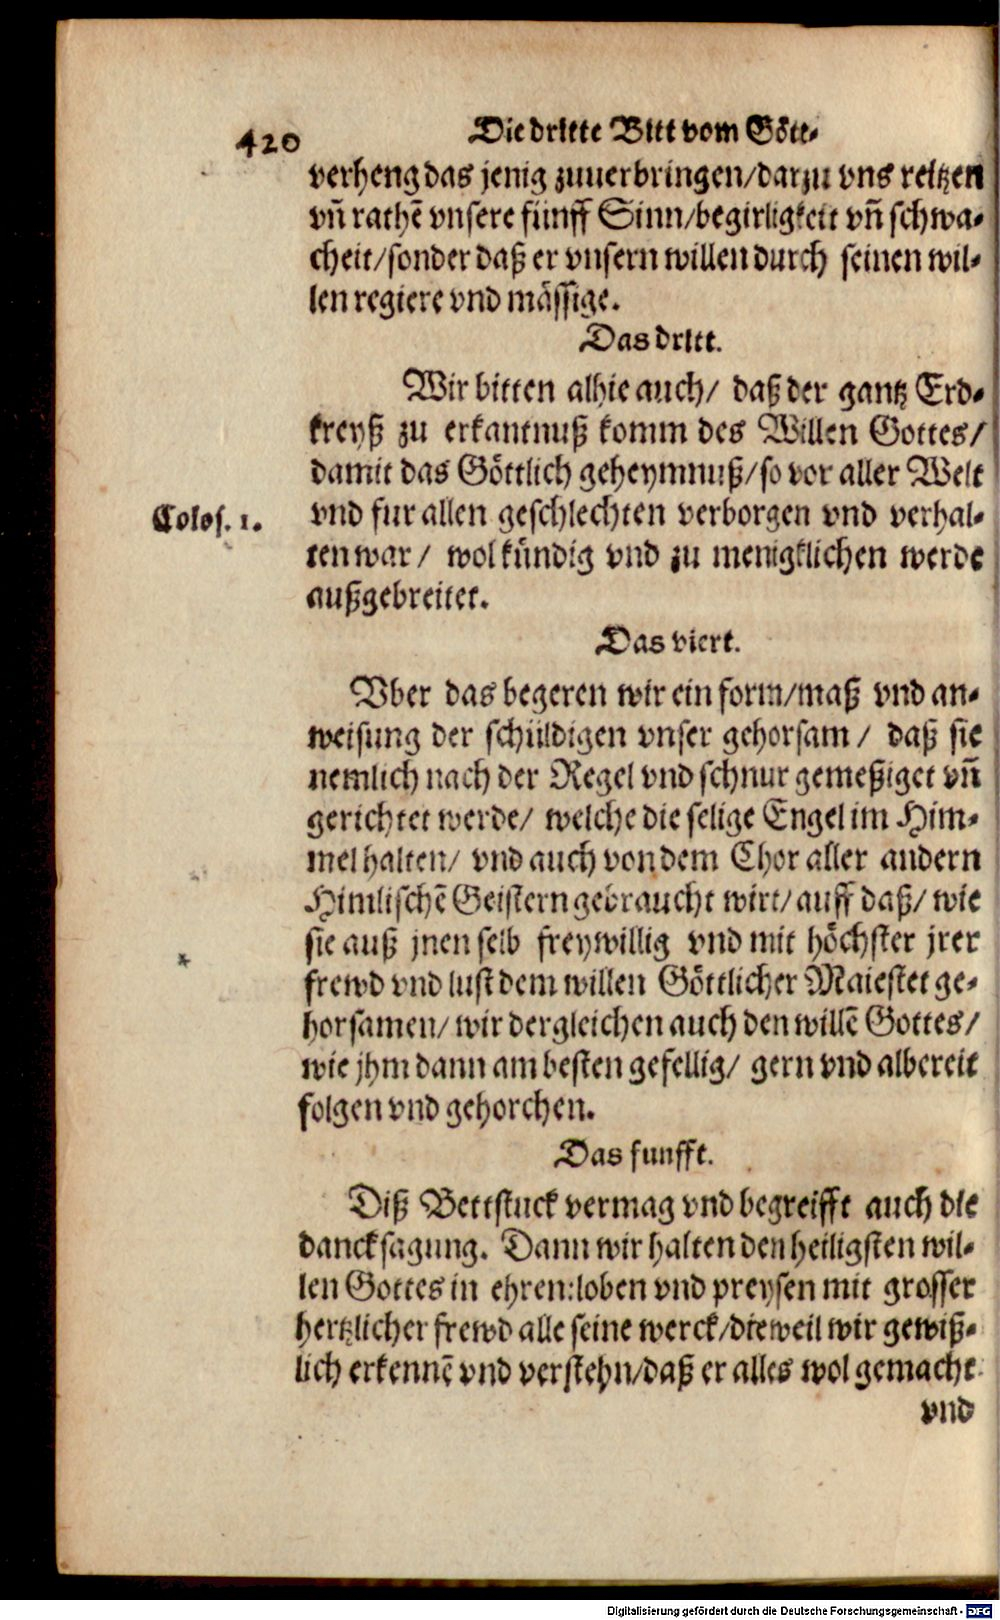 420 Die dritte Bitt vom Gött-
verheng das jenig zuuerbringen/darzu vns reitzen
vñ rathẽ vnsere fünff Sinn/begirligkeit vñ schwa-
cheit/sonder daß er vnsern willen durch seinen wil-
len regiere vnd mässige.
Das dritt.
Wir bitten alhie auch/ daß der gantz Erd-
kreyß zu erkantnuß komm des Willen Gottes/
damit das Göttlich geheymnuß/so vor aller Welt
Colos. 1. vnd fur allen geschlechten verborgen vnd verhal-
ten war/ wol kündig vnd zu menigklichen werde
außgebreitet.
Das viert.
Vber das begeren wir ein form/maß vnd an-
weisung der schüldigen vnser gehorsam/ daß sie
nemlich nach der Regel vnd schnur gemeßiget vñ
gerichtet werde/ welche die selige Engel im Him-
mel halten/ vnd auch von dem Chor aller andern
Himlischẽ Geistern gebraucht wirt/auff daß/ wie
sie auß jnen selb freywillig vnd mit höchster jrer
frewd vnd lust dem willen Göttlicher Maiestet ge-
horsamen/ wir dergleichen auch den willẽ Gottes/
wie jhm dann am besten gefellig/ gern vnd albereit
folgen vnd gehorchen.
Das funfft.
Diß Bettstuck vermag vnd begreifft auch die
dancksagung. Dann wir halten den heiligsten wil-
len Gottes in ehren:loben vnd preysen mit grosser
hertzlicher frewd alle seine werck/dieweil wir gewiß-
lich erkennẽ vnd verstehn/daß er alles wol gemacht
vnd
Digitalisierung gefördert durch die Deutsche Forschungsgemeinschaft - DFG